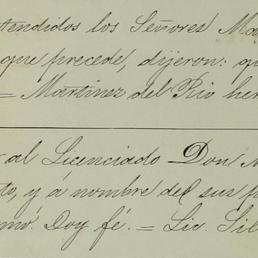 tendidos los Señores Ma
que precede, dijeron: qu
= Martinez del Rio her
al Licenciado Don N
to, y á nombre del sus p
mó. Doy fé. = Lic. Sil